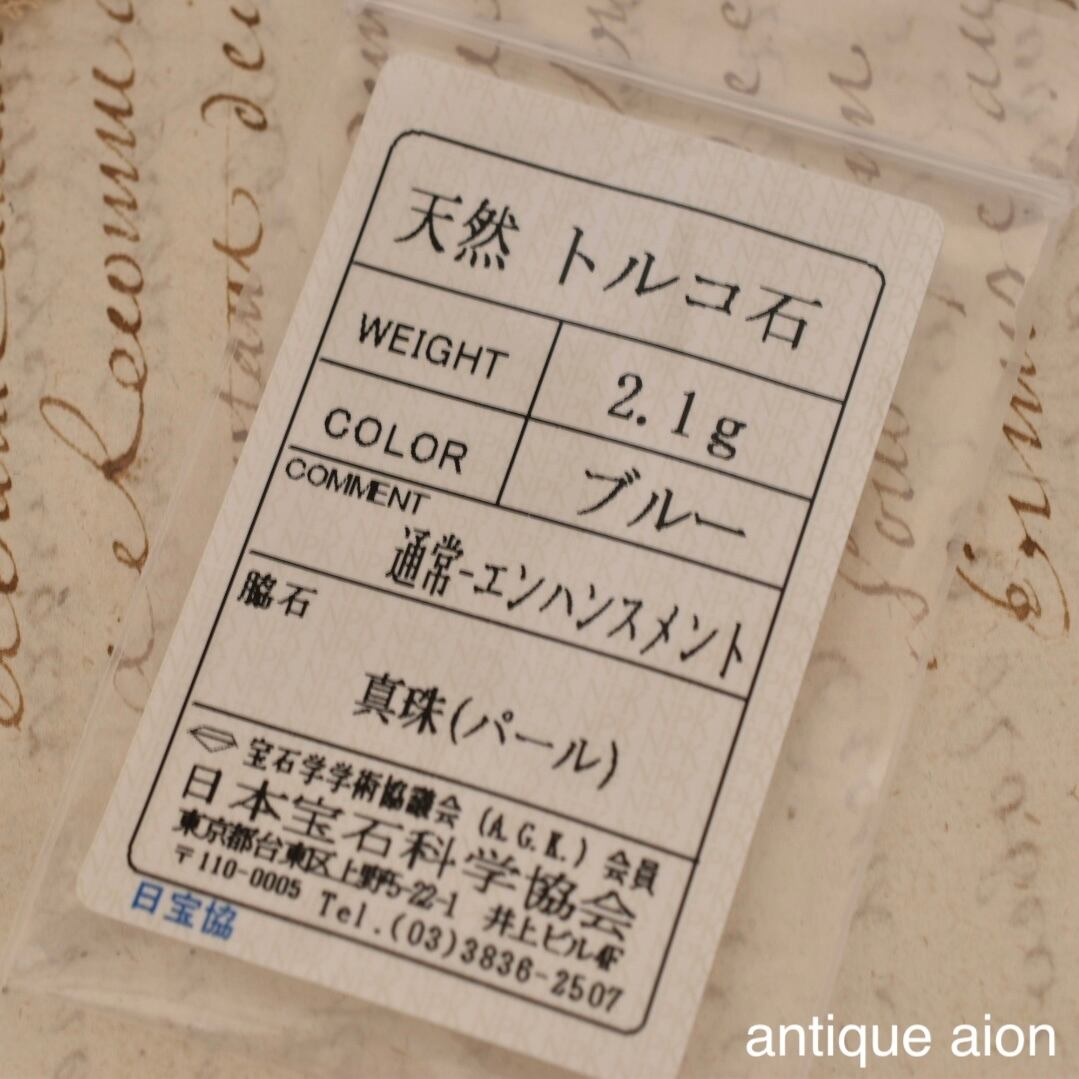 天然 トルコ石
WEIGHT 2.1g
COLOR ブルー
COMMENT
通常-エンハンスメント
脇石
真珠(パール)
宝石学学術協議会 (A.G.K.) 会員
日本宝石科学協会
東京都台東区上野5-22-1 井上ビル4F
〒110-0005 Tel.(03)3836-2507
日宝協
antique aion